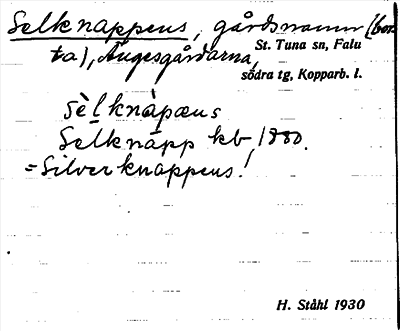 Selknappens, gårdsnamn (bor-
ta), Ängesgårdarna,
St. Tuna sn, Falu
södra tg, Kopparb. l.
sèlknàpæns
Selknäpp kb, 1880.
= Silverknappens!
H. Ståhl 1930